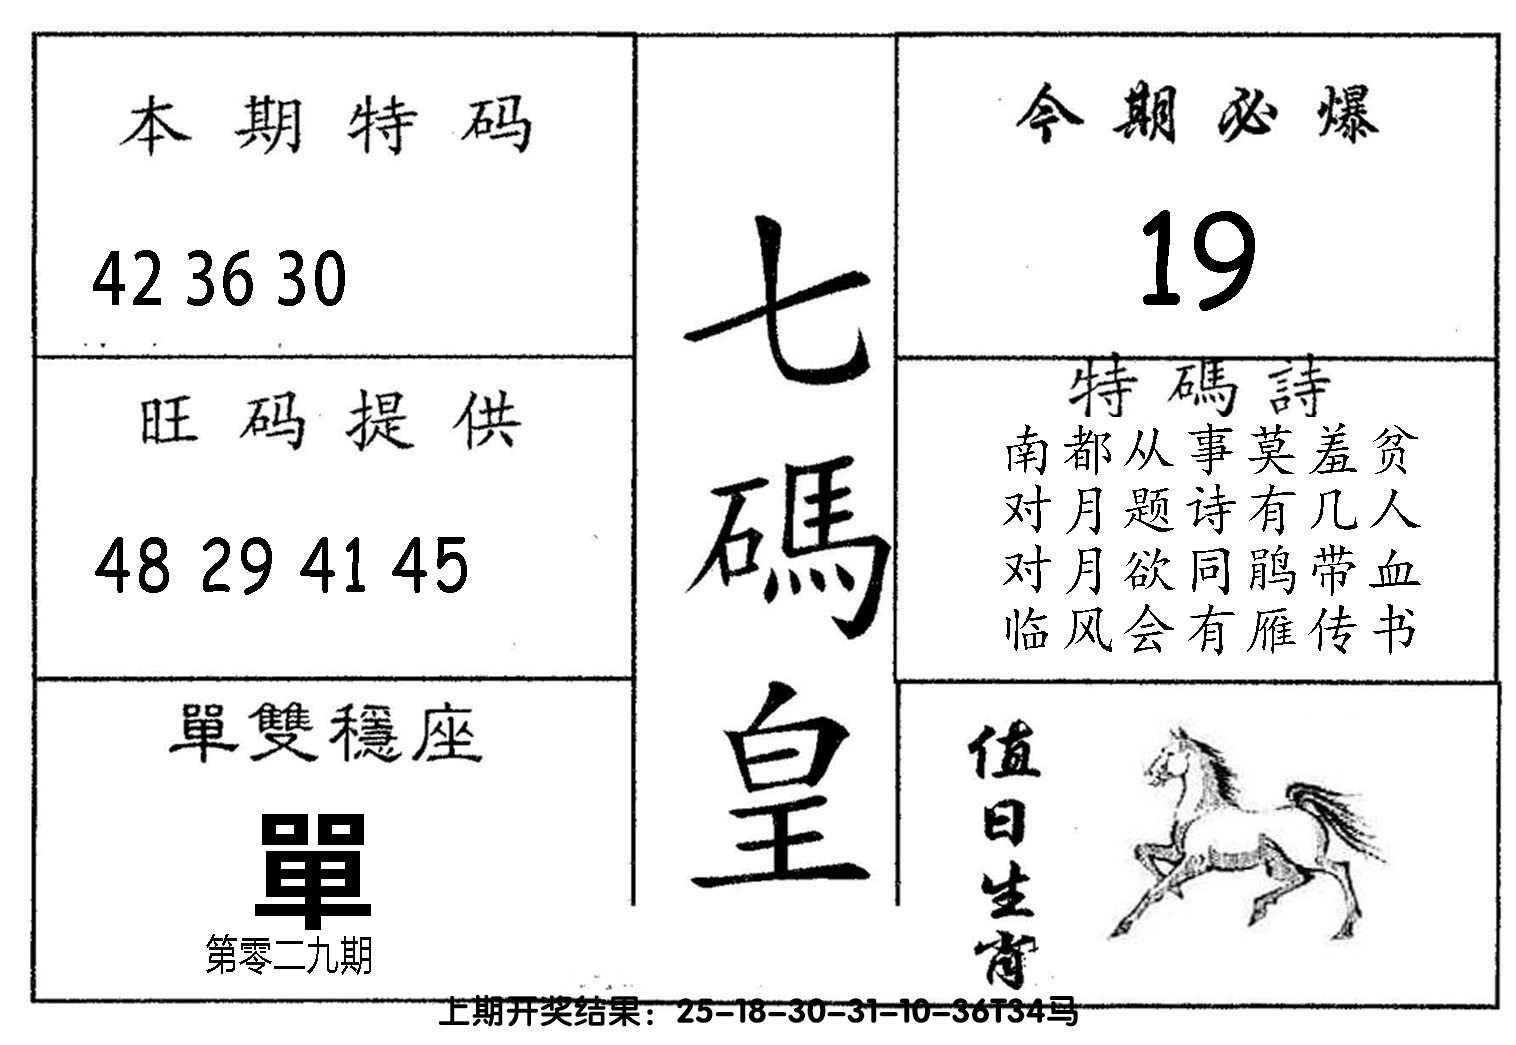 本期特码
42 36 30
旺码提供
48 29 41 45
單雙穩座
單
第零二九期
七碼皇
今期必爆
19
特碼詩
南都从事莫羞贫
对月题诗有几人
对月欲同鹃带血
临风会有雁传书
值日生肖
上期开奖结果：25-18-30-31-10-36T34马